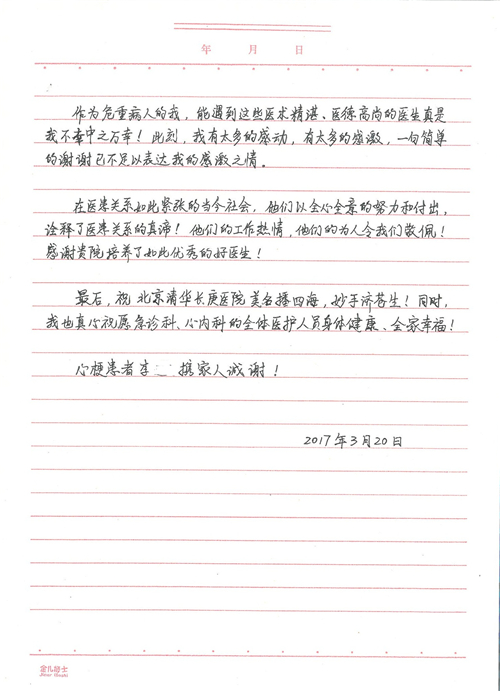 年 月 日
作为危重病人的我，能遇到这些医术精湛、医德高尚的医生真是
我不幸中之万幸！此刻，我有太多的感动，有太多的感激，一句简单
的谢谢已不足以表达我的感激之情。
在医患关系如此紧张的当今社会，他们以全心全意的努力和付出，
诠释了医患关系的真谛！他们的工作热情，他们的为人令我们敬佩！
感谢贵院培养了如此优秀的好医生！
最后，祝北京清华长庚医院美名播四海，妙手济苍生！同时，
我也真心祝愿急诊科、心内科的全体医护人员身体健康、全家幸福！
心梗患者李 携家人诚谢！
2017年3月20日